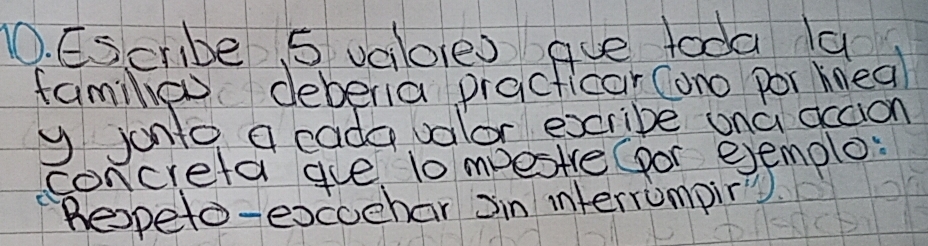 10. Escribe 5 valores que toda la
familias deberia practicar (uno por linea)
y junto a cada valor escribe una accion
concreta que lo muestre (por ejemplo:
"Respeto - escuchar sin interrumpir").